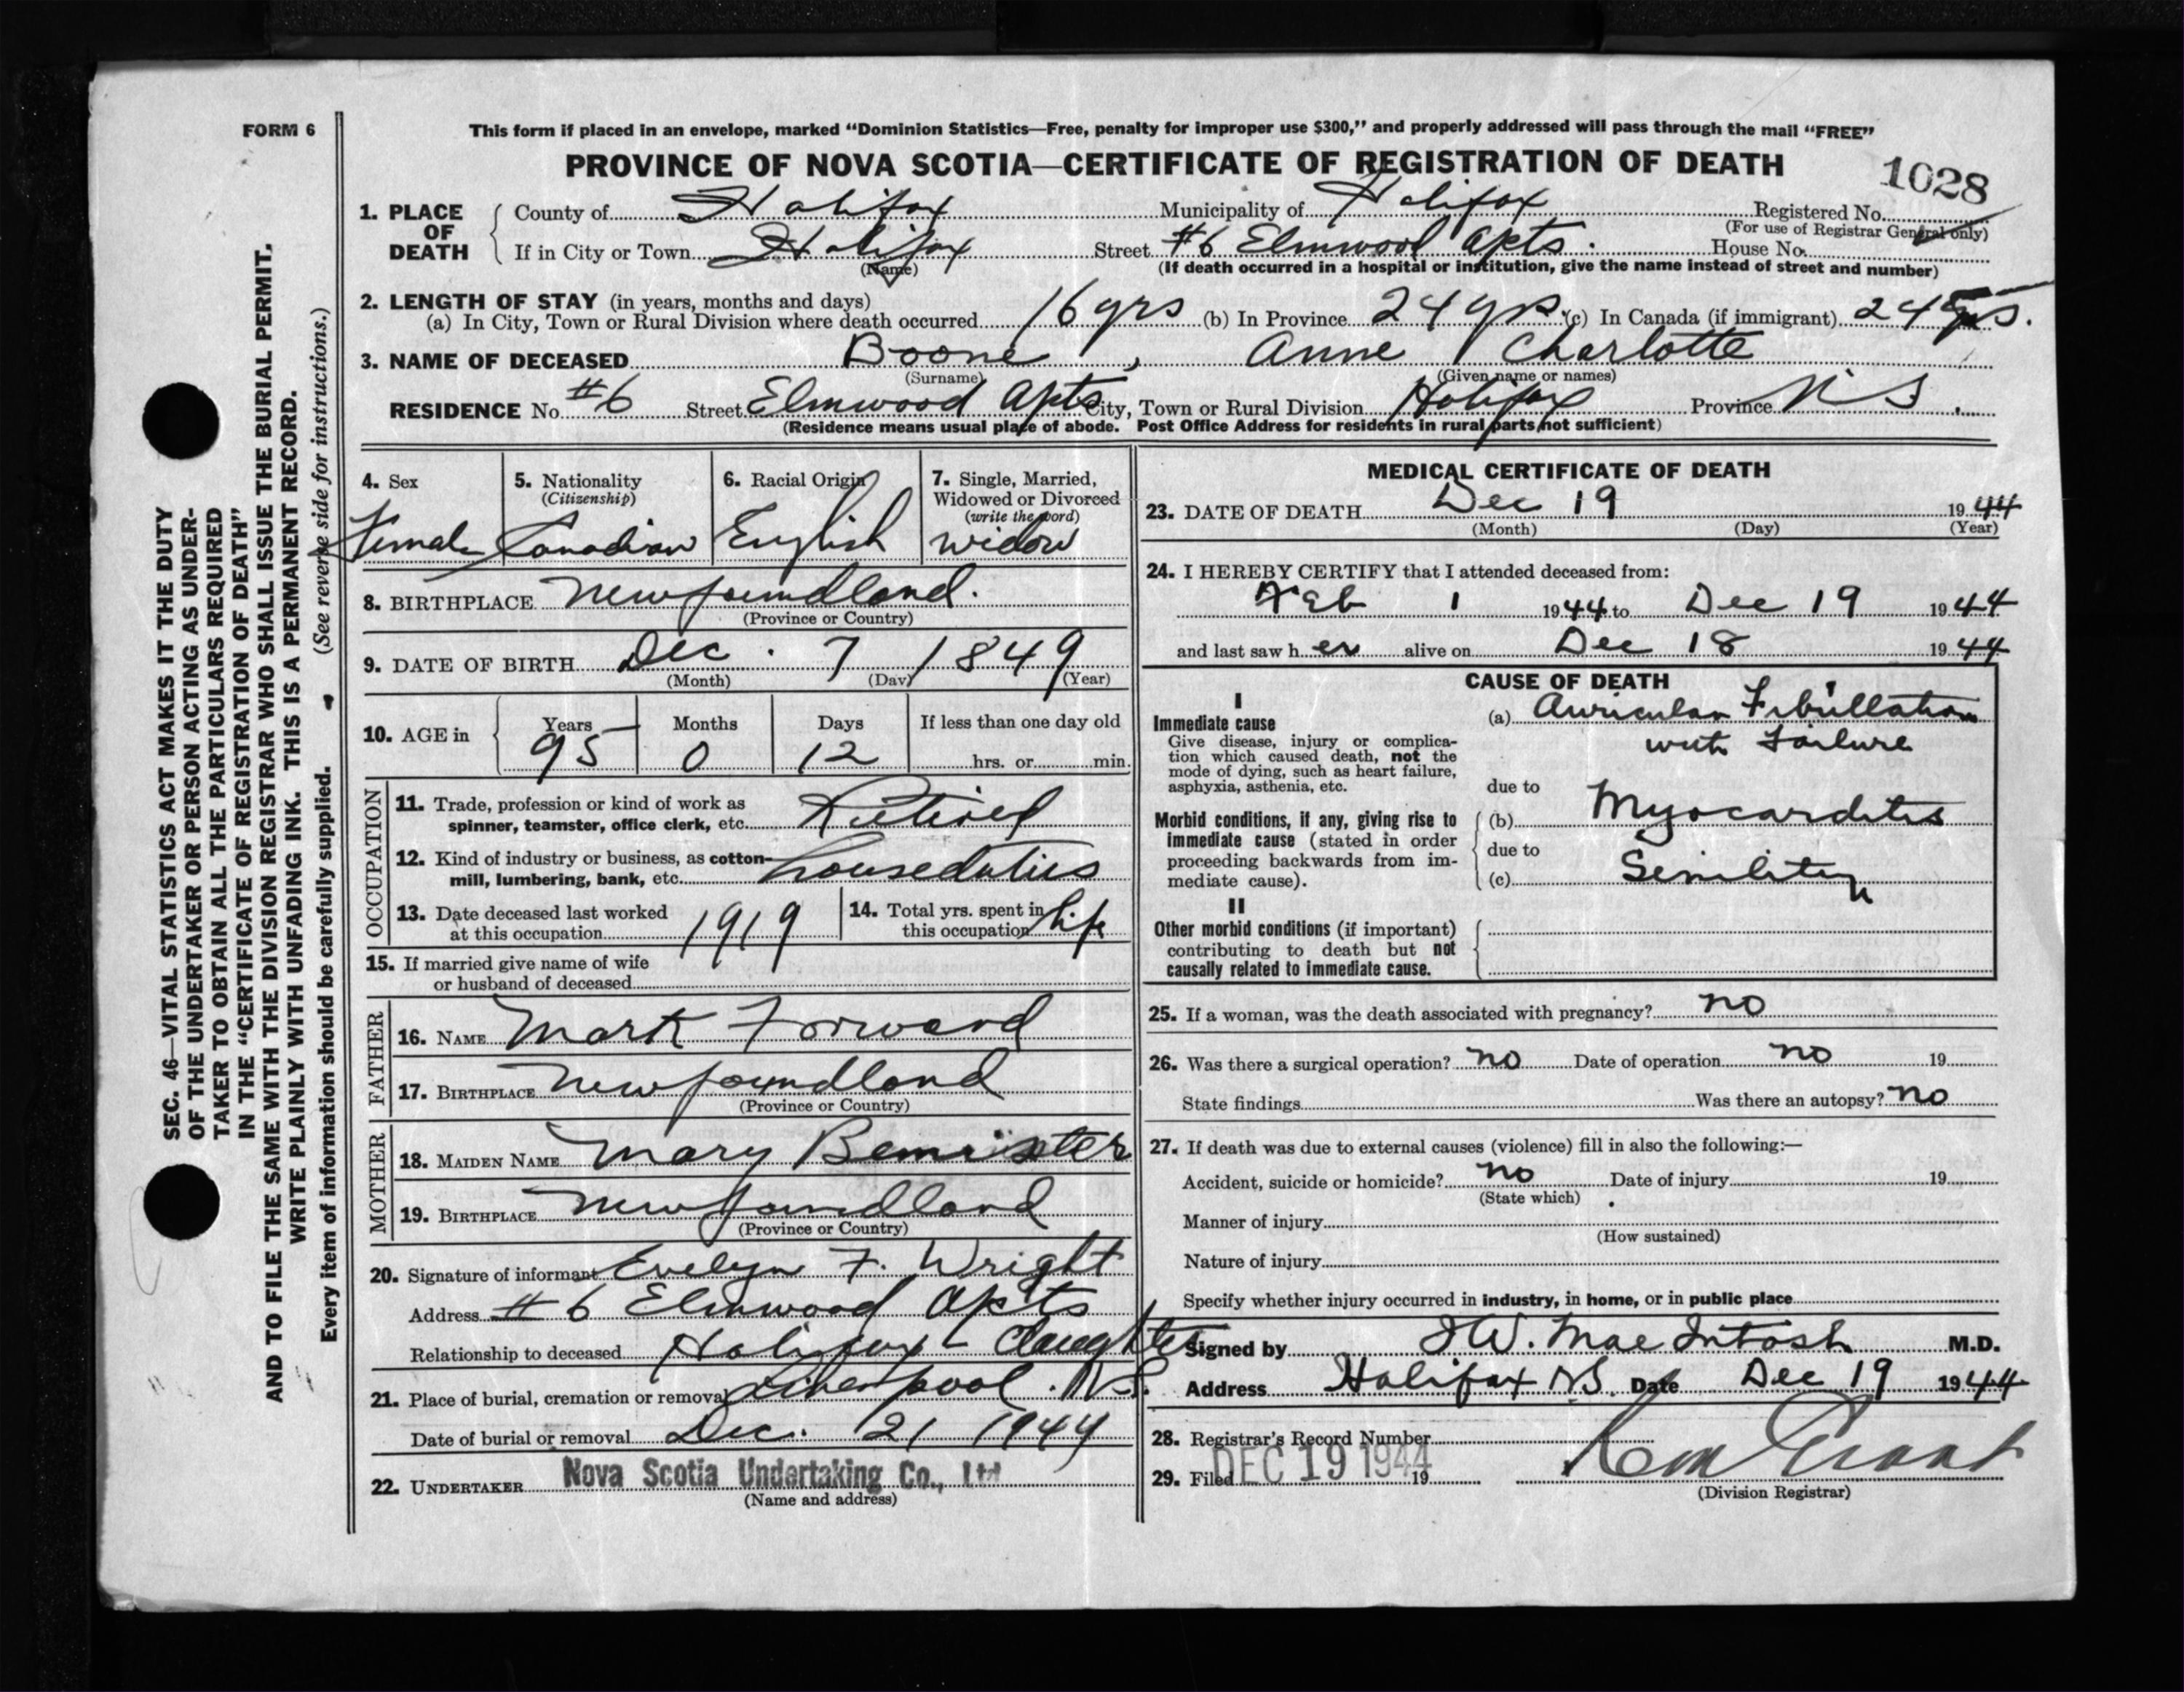 FORM 6
This form if placed in an envelope, marked "Dominion Statistics—Free, penalty for improper use $300," and properly addressed will pass through the mail "FREE"
PROVINCE OF NOVA SCOTIA—CERTIFICATE OF REGISTRATION OF DEATH
1028
1. PLACE OF DEATH
County of Halifax Municipality of Halifax Registered No.
(For use of Registrar General only)
If in City or Town Halifax Street #6 Elmwood Apts. House No.
(Name) (If death occurred in a hospital or institution, give the name instead of street and number)
2. LENGTH OF STAY (in years, months and days)
(a) In City, Town or Rural Division where death occurred 16 yrs (b) In Province 24 yrs (c) In Canada (if immigrant) 24 yrs.
3. NAME OF DECEASED Boone, Anne Charlotte
(Surname) (Given name or names)
RESIDENCE No. #6 Street Elmwood Apts City, Town or Rural Division Halifax Province N S.
(Residence means usual place of abode. Post Office Address for residents in rural parts not sufficient)
4. Sex
Female
5. Nationality
(Citizenship)
Canadian
6. Racial Origin
English
7. Single, Married,
Widowed or Divorced
(write the word)
widow
8. BIRTHPLACE Newfoundland.
(Province or Country)
9. DATE OF BIRTH Dec. 7 1849
(Month) (Day) (Year)
10. AGE in
Years Months Days If less than one day old
95 0 12 hrs. or min.
OCCUPATION
11. Trade, profession or kind of work as
spinner, teamster, office clerk, etc. Retired
12. Kind of industry or business, as cotton-
mill, lumbering, bank, etc. houseduties
13. Date deceased last worked
at this occupation 1919
14. Total yrs. spent in
this occupation life
15. If married give name of wife
or husband of deceased
FATHER
16. NAME Mark Forward
17. BIRTHPLACE Newfoundland
(Province or Country)
MOTHER
18. MAIDEN NAME Mary Bemister
19. BIRTHPLACE Newfoundland
(Province or Country)
20. Signature of informant Evelyn F. Wright
Address #6 Elmwood Apts
Relationship to deceased Halifax - daughter
21. Place of burial, cremation or removal Liverpool. N.S.
Date of burial or removal Dec. 21 1944
22. UNDERTAKER Nova Scotia Undertaking Co., Ltd
(Name and address)
MEDICAL CERTIFICATE OF DEATH
23. DATE OF DEATH Dec 19 1944
(Month) (Day) (Year)
24. I HEREBY CERTIFY that I attended deceased from:
Feb 1 1944 to Dec 19 1944
and last saw her alive on Dec 18 1944
CAUSE OF DEATH
I
Immediate cause
Give disease, injury or complica-
tion which caused death, not the
mode of dying, such as heart failure,
asphyxia, asthenia, etc.
(a) Auricular Fibrillation
with Failure
due to
Morbid conditions, if any, giving rise to
immediate cause (stated in order
proceeding backwards from im-
mediate cause).
(b) Myocarditis
due to
(c) Senility
II
Other morbid conditions (if important)
contributing to death but not
causally related to immediate cause.
25. If a woman, was the death associated with pregnancy? no
26. Was there a surgical operation? no Date of operation no 19
State findings Was there an autopsy? no
27. If death was due to external causes (violence) fill in also the following:—
Accident, suicide or homicide? no Date of injury 19
(State which)
Manner of injury
(How sustained)
Nature of injury
Specify whether injury occurred in industry, in home, or in public place
Signed by J W. MacIntosh M.D.
Address Halifax N.S. Date Dec 19 1944
28. Registrar's Record Number
29. Filed DEC 19 1944 19
(Division Registrar)
SEC. 46—VITAL STATISTICS ACT MAKES IT THE DUTY
OF THE UNDERTAKER OR PERSON ACTING AS UNDER-
TAKER TO OBTAIN ALL THE PARTICULARS REQUIRED
IN THE "CERTIFICATE OF REGISTRATION OF DEATH"
AND TO FILE THE SAME WITH THE DIVISION REGISTRAR WHO SHALL ISSUE THE BURIAL PERMIT.
WRITE PLAINLY WITH UNFADING INK. THIS IS A PERMANENT RECORD.
Every item of information should be carefully supplied. (See reverse side for instructions.)